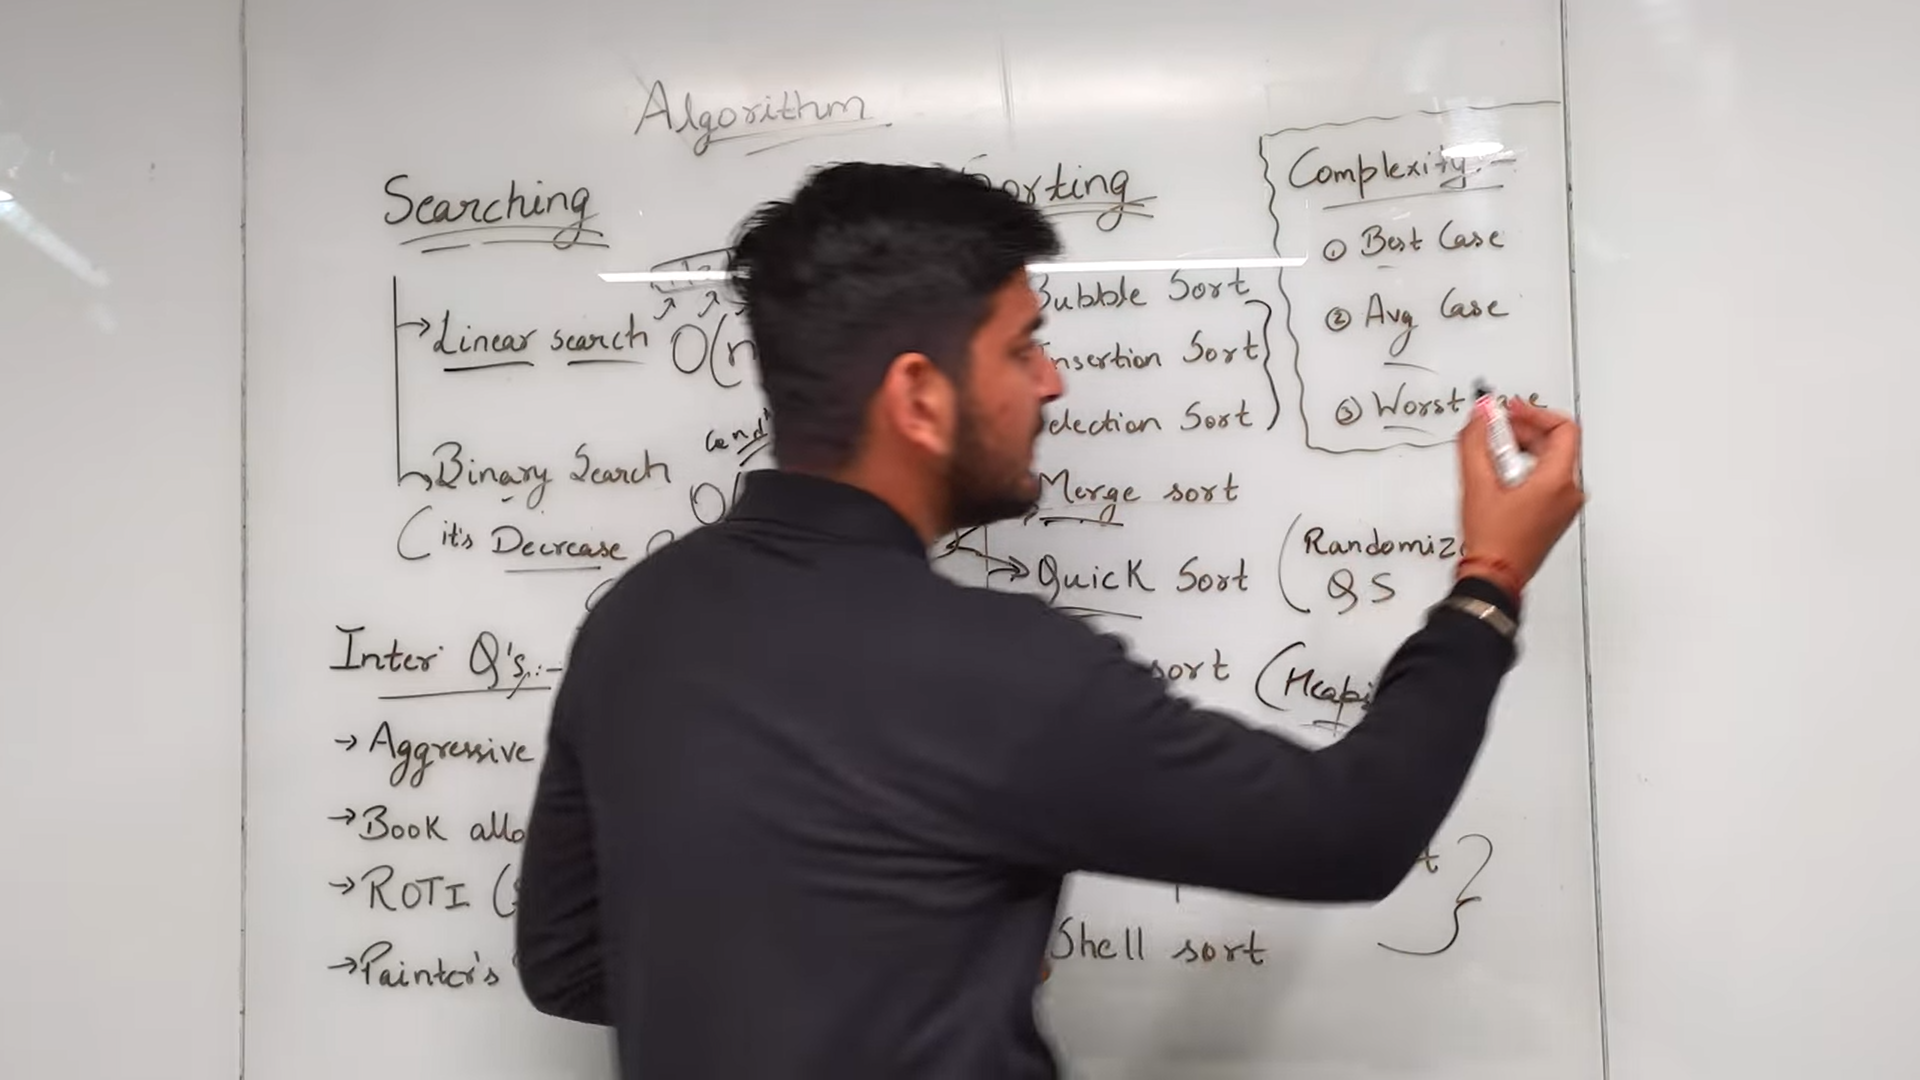 Algorithm
Searching
Linear search O(n
Binary Search
(it's Decrease
Inter Q's :-
→ Aggressive
→ Book allo
→ ROTI (
→ Painter's
orting
Bubble Sort
nsertion Sort
election Sort
Merge sort
Quick Sort (Randomiz
QS
sort (Heapi
t
Shell sort
Complexity :-
① Best Case
② Avg Case
③ Worst